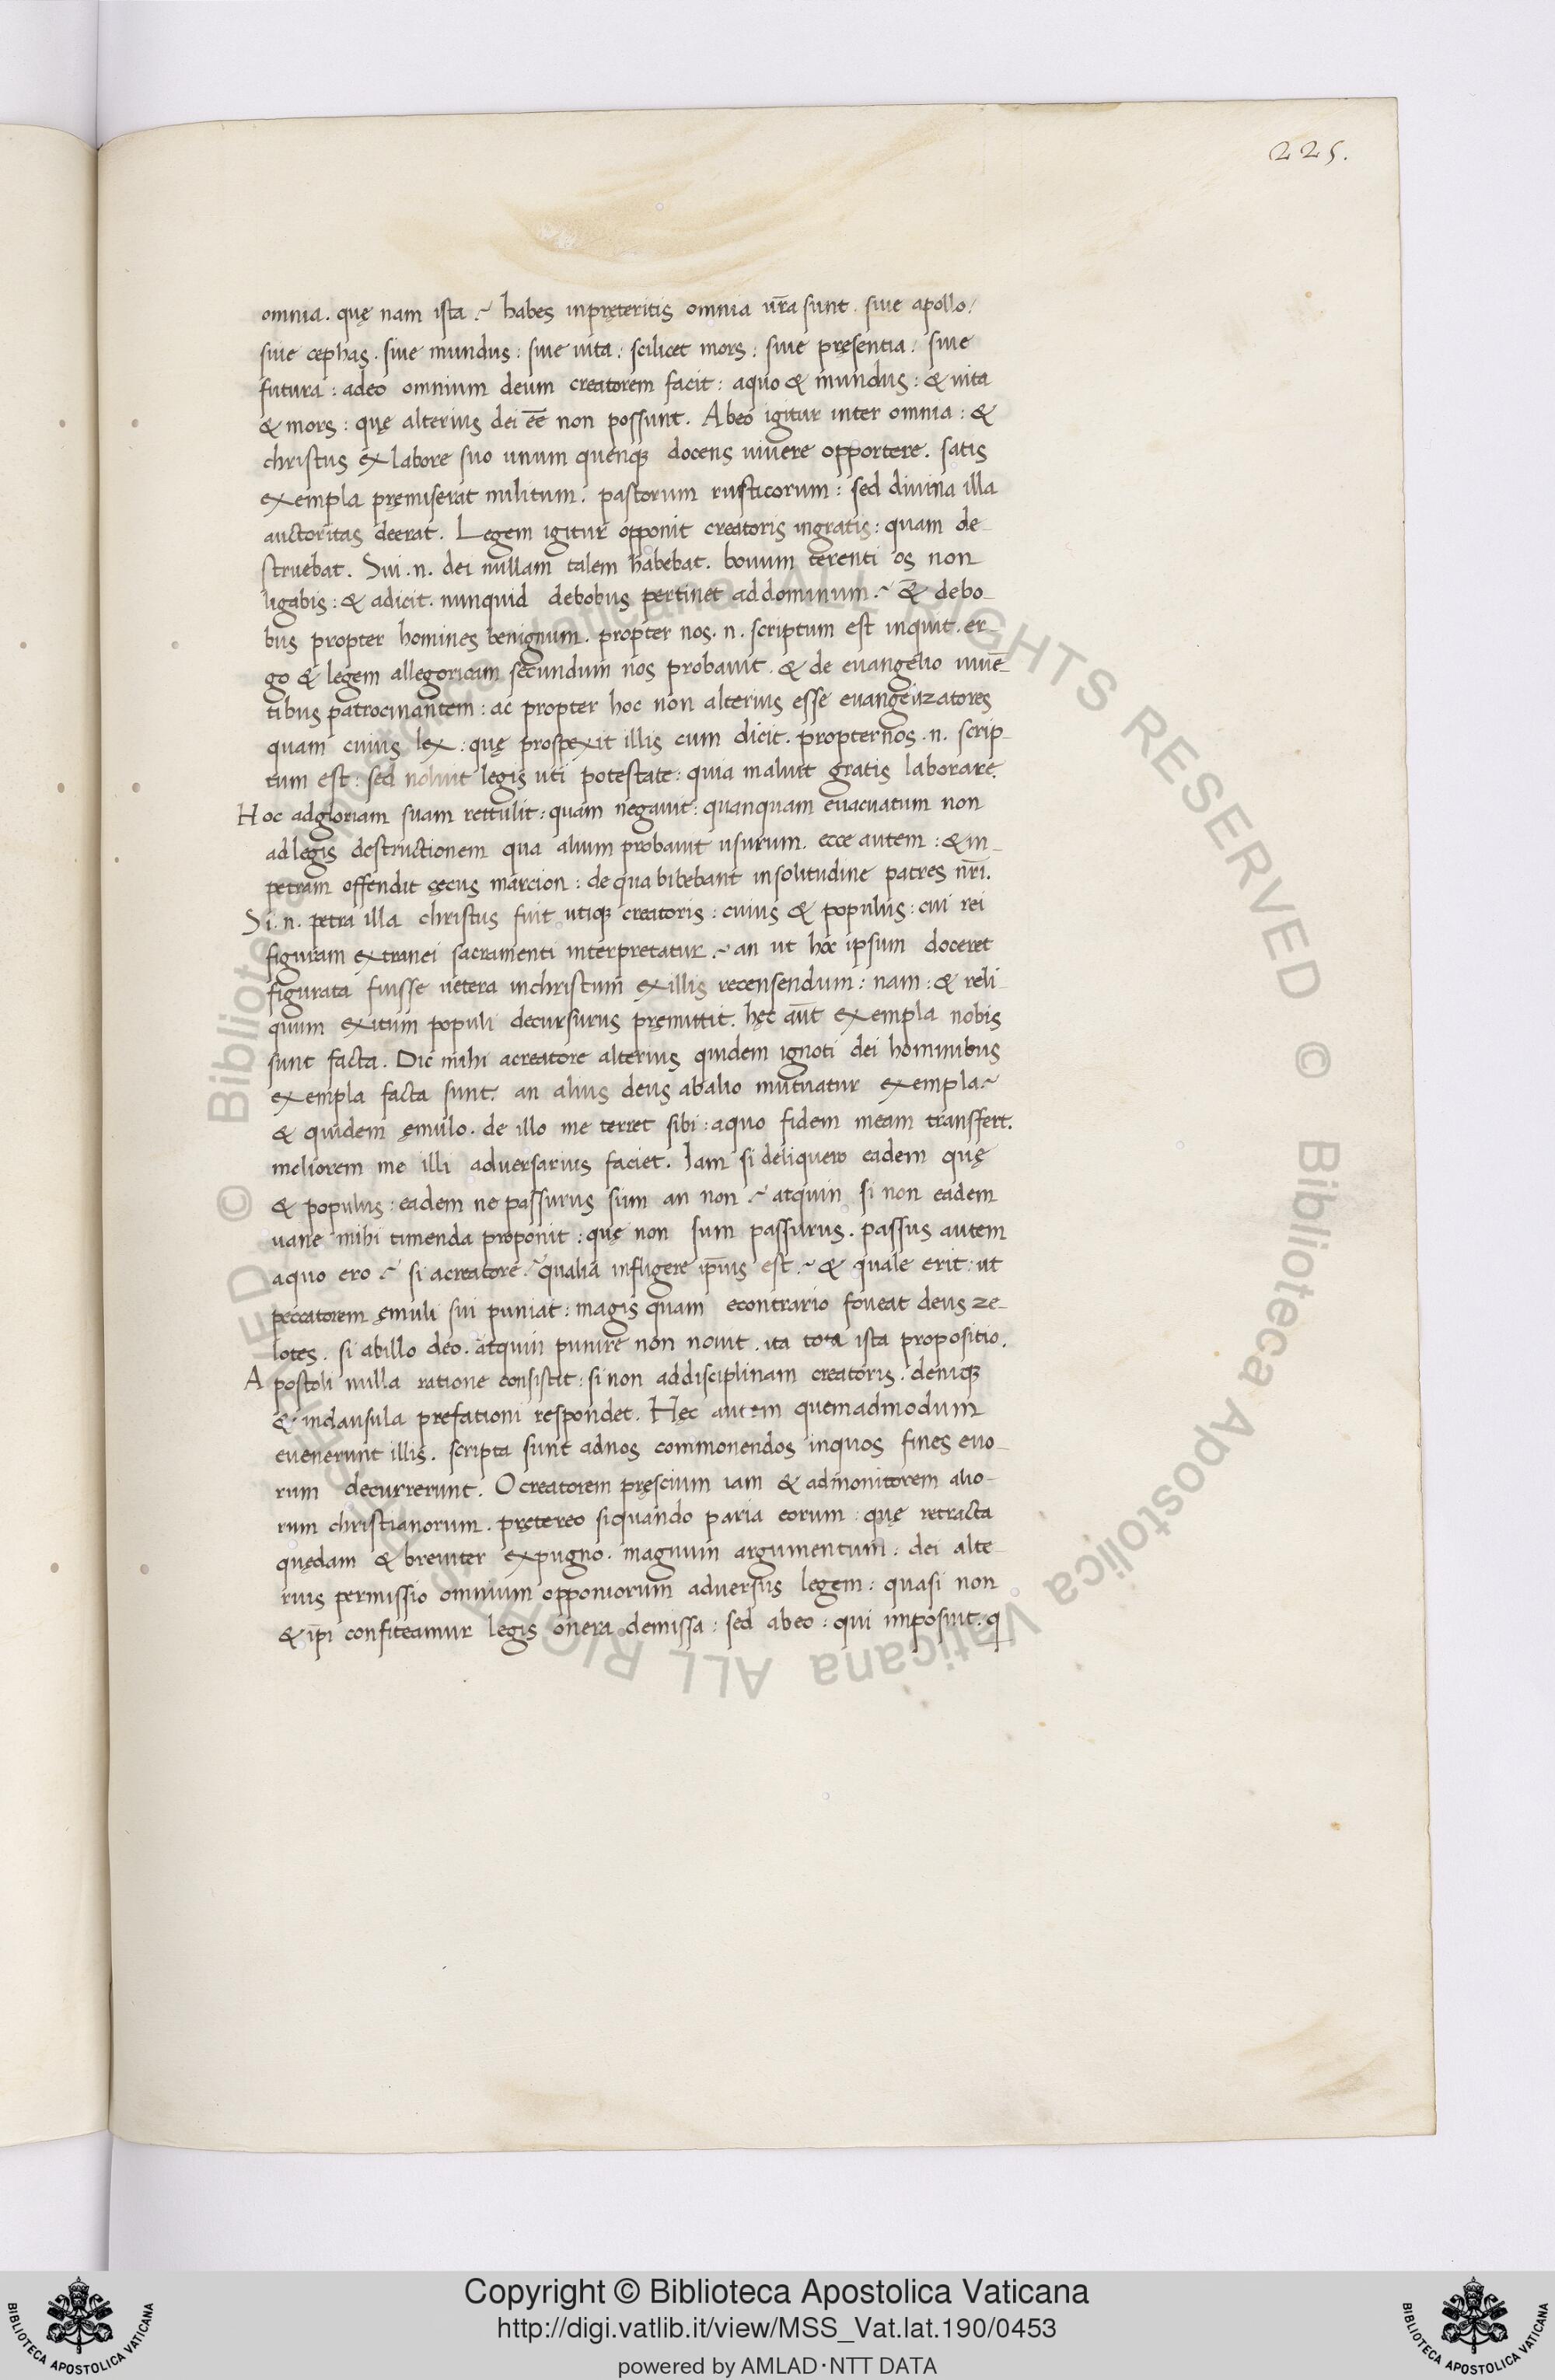 225.
omnia. quę nam ista? habes inpręteritis omnia ur̄a sunt. siue apollo/
siue cephas. siue mundus: siue uita: scilicet mors: siue pręsentia: siue
futura: adeo omnium deum creatorem facit: aquo & mundus: & uita
& mors: quę alterius dei ee̅ non possunt. Abeo igitur inter omnia: &
christus exlabore suo unum quenq; docens uiuere opportere. satis
exempla pręmiserat militum. pastorum rusticorum: sed diuina illa
auctoritas deerat. Legem igitur opponit creatoris ingratis: quam de-
struebat. Sui .n. dei nullam talem habebat. bouum terenti os non
ligabis: & adicit. nunquid debobus pertinet addominum? & debo-
bus propter homines benignum. propter nos .n. scriptum est inquit. er-
go & legem allegoricam secundum nos probauit. & de euangelio uiue̅-
tibus patrocinantem: ac propter hoc non alterius esse euangelizatores
quam cuius lex: quę prospexit illis cum dicit. propternos .n. scrip-
tum est: sed noluit legis uti potestate: quia maluit gratis laborare.
Hoc adgloriam suam rettulit: quam negauit: quanquam euacuatum non
adlegis destructionem qua alium probauit usurum. ecce autem: & in-
petram offendit cęcus marcion: dequa bibebant insolitudine patres nr̄i.
Si .n. petra illa christus fuit utiq; creatoris: cuius & populus: cui rei
figuram extranei sacramenti interpretatur? an ut hoc ipsum doceret
figurata fuisse uetera inchristum exillis recensendum: nam: & reli-
quum exitum populi decursurus pręmittit. hęc au̅t exempla nobis
sunt facta. Dic mihi acreatore alterius quidem ignoti dei hominibus
exempla facta sunt. an alius deus abalio mutuatur exempla?
& quidem ęmulo. de illo me terret sibi: aquo fidem meam transffert.
meliorem me illi aduersarius faciet. Iam si deliquero eadem quę
& populus: eadem ne passurus sum an non? atquin si non eadem
uane mihi timenda proponit: quę non sum passurus. passus autem
aquo ero? si acreatore? qualia infligere ip̅ius est? & quale erit: ut
peccatorem ęmuli sui puniat: magis quam econtrario foueat deus ze-
lotes. si abillo deo. atquin punire non nouit. ita tota ista propositio.
Apostoli nulla ratione consistit: si non addisciplinam creatoris. deniq;
& inclausula prefationi respondet. Hęc autem quemadmodum
euenerunt illis. scripta sunt adnos commonendos inquos fines euo-
rum decurrerunt. O creatorem pręscium iam & admonitorem alio-
rum christianorum. prętereo siquando paria eorum: quę retracta
quędam & breuiter expugno. magnum argumentum: dei alte-
rius permissio omnium opponiorum aduersus legem: quasi non
& ip̅i confiteamur legis onera demissa: sed abeo: qui imposuit. q
Copyright © Biblioteca Apostolica Vaticana
http://digi.vatlib.it/view/MSS_Vat.lat.190/0453
powered by AMLAD·NTT DATA
BIBLIOTECA APOSTOLICA VATICANA
BIBLIOTECA APOSTOLICA VATICANA
© Biblioteca Apostolica Vaticana ALL RIGHTS RESERVED © Biblioteca Apostolica Vaticana ALL RIGHTS RESERVED